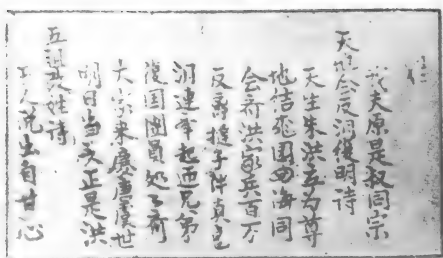 我夫原是叔同宗
天地会反清復明诗
天生朱洪立为尊
地结桃園四海同
会齐洪家兵百万
反離挞子伴真龙
清連宰起迎兄弟
復国團員处々齐
大家来慶唐虞世
明日当头正是洪
五祖改姓诗
人 出自甘心